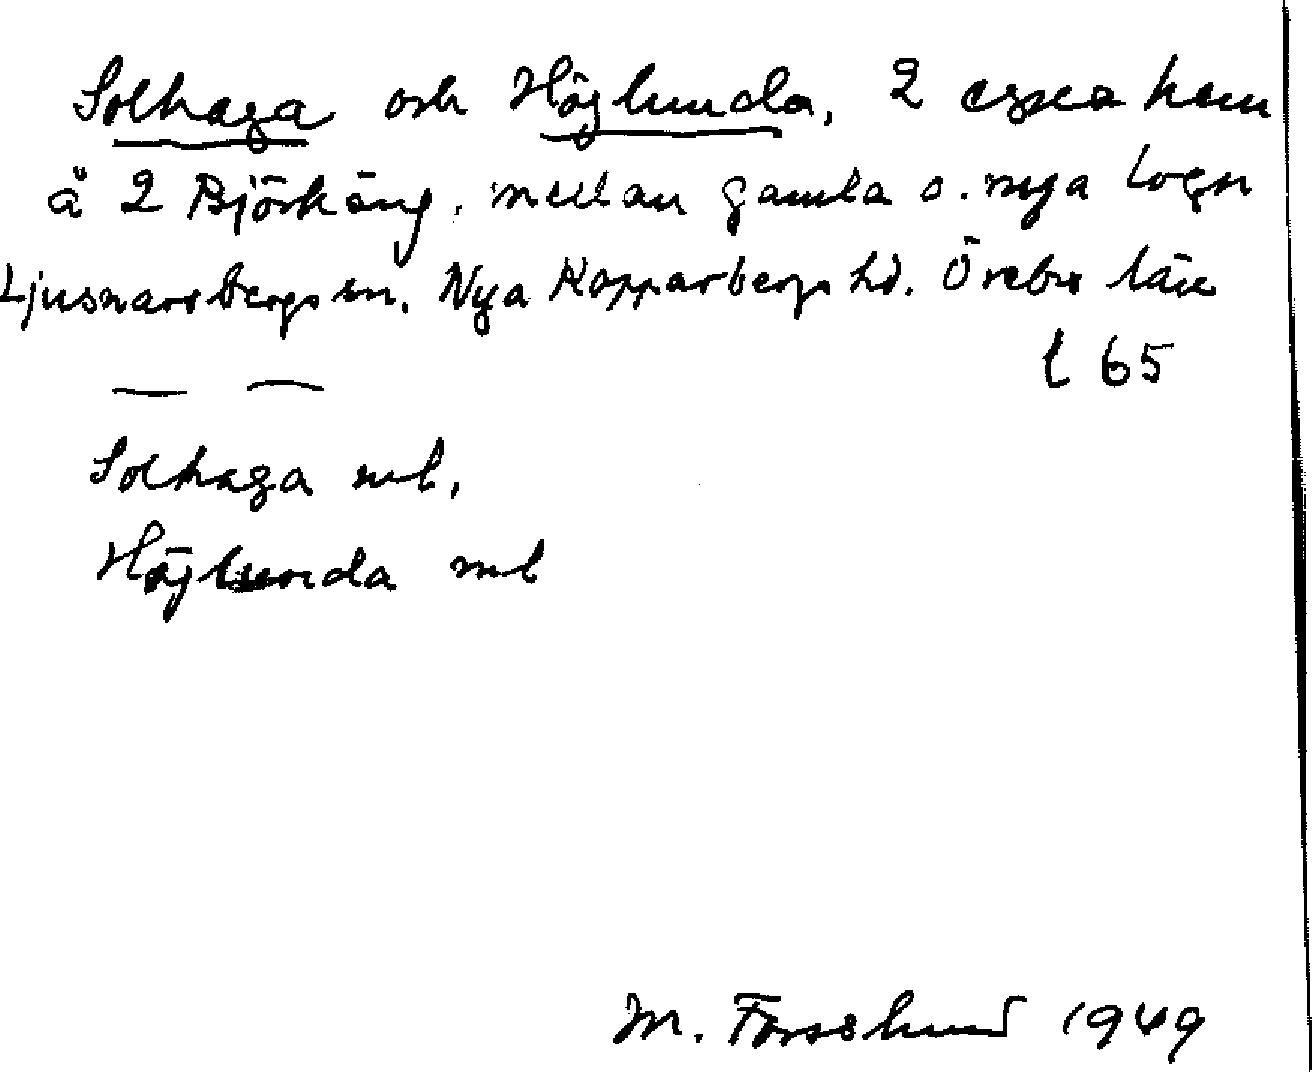 Solhaga och Höglunda, 2 egna hem
å 2 Björkäng. mellan gamla o. nya
Ljusnarsbergs sn. Nya Kopparbergs hd. Örebro län
l 65
Solhaga
Höglunda
M. Forsslund 1949